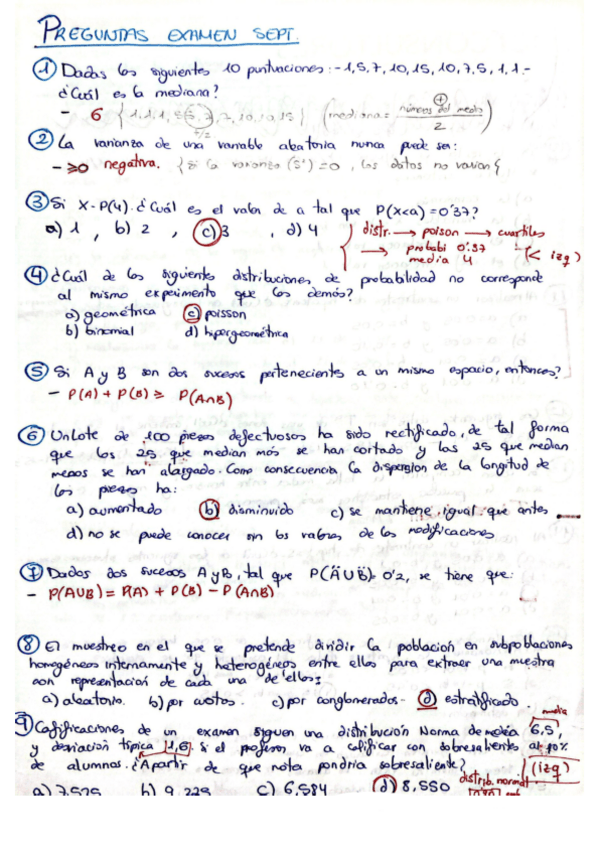 PREGUNTAS EXAMEN SEPT.
① Dadas los siguientes 10 puntuaciones: -1,5,7,10,15,10,7,5,1,1.-
¿Cuál es la mediana?
- 6 {1,1,1,5,5,7,7,10,10,15} (mediana = números del medio / 2)
② La varianza de una variable aleatoria nunca puede ser:
- ≥0 negativa. {si la varianza (S²)=0, los datos no varían{
③ Si X-P(4). ¿Cuál es el valor de a tal que P(X<a)=0'37?
a) 1, b) 2, c) 3, d) 4
distr. → poison → cuartiles
→ probabi 0'37 - (< izq)
media 4
④ ¿Cuál de los siguientes distribuciones de probabilidad no corresponde
al mismo experimento que los demós?
a) geométrica c) poisson
b) binomial d) hipergeométrica
⑤ Si A y B son dos sucesos pertenecientes a un mismo espacio, entonces?
- P(A) + P(B) ≥ P(A∩B)
⑥ Un Lote de 100 piezas defectuosos ha sido rectificado, de tal forma
que los 25 que median más se han cortado y las 25 que median
menos se han alargado. Como consecuencia, la dispersión de la longitud de
los piezas ha:
a) aumentado b) disminuido c) se mantiene igual que antes
d) no se puede conocer sin los valores de las modificaciones
⑦ Dados dos sucesos A y B, tal que P(ĀUB̄)= 0'2, se tiene que:
- P(AUB) = P(A) + P(B) - P(A∩B)
⑧ El muestreo en el que se pretende dividir la población en subpoblaciones
homogéneos internamente y heterogéneos entre ellos para extraer una muestra
con representación de cada una de ellos;
a) aleatorio. b) por cuotas. c) por conglomerados- d) estratificado.
media
⑨ Calificaciones de un examen siguen una distribución Norma de media 6,5,
y desviación típica 1,6. Si el profesor va a calificar con sobresalientes al 10%
de alumnos. ¿A partir de que nota pondría sobresaliente? (izq)
a) 7,525 b) 9,225 c) 6,584 d) 8,550 distrib. normal